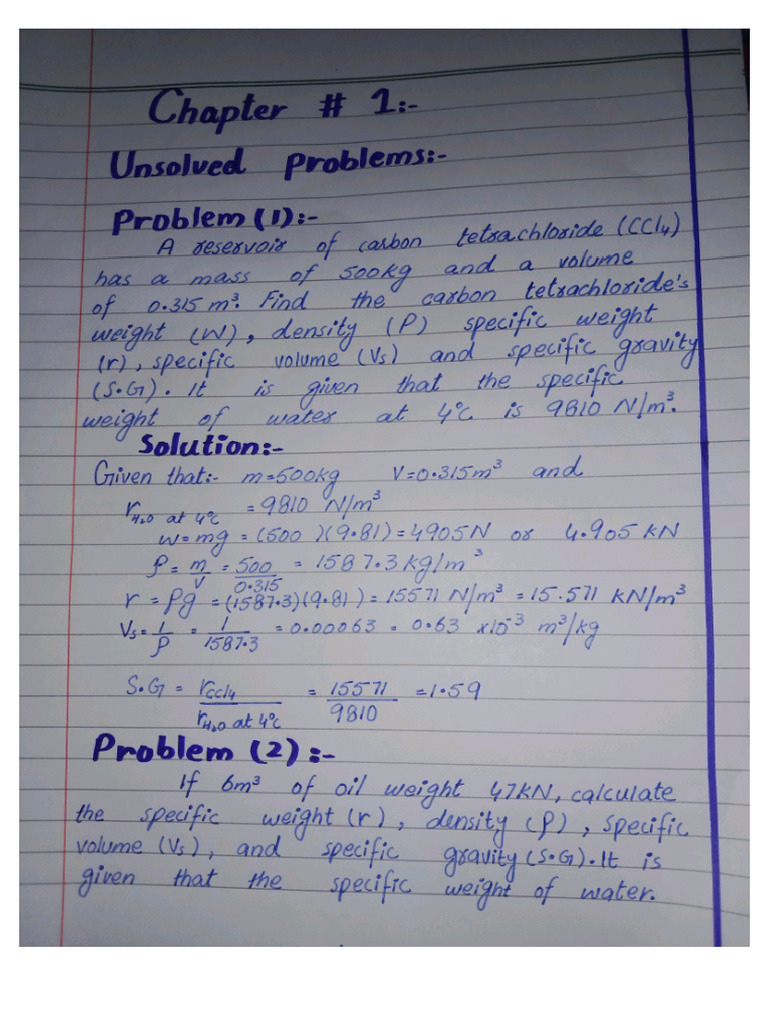 Chapter # 1:-
Unsolved Problems:-
Problem (1):-
A reservoir of carbon tetrachloride (CCl4)
has a mass of 500kg and a volume
of 0.315 m³. Find the carbon tetrachloride's
weight (W), density (ρ) specific weight
(r), specific volume (Vs) and specific gravity
(S.G). It is given that the specific
weight of water at 4°C is 9810 N/m³.
Solution:-
Given that:- m=500kg V=0.315m³ and
rH₂O at 4°C = 9810 N/m³
w=mg = (500)(9.81) = 4905N or 4.905 kN
ρ = m/V = 500/0.315 = 1587.3 kg/m³
r = ρg = (1587.3)(9.81) = 15571 N/m³ = 15.571 kN/m³
Vs = 1/ρ = 1/1587.3 = 0.00063 = 0.63 x10⁻³ m³/kg
S.G = rCCl4/rH₂O at 4°C = 15571/9810 = 1.59
Problem (2):-
If 6m³ of oil weight 47kN, calculate
the specific weight (r), density (ρ), specific
volume (Vs), and specific gravity (S.G). It is
given that the specific weight of water.